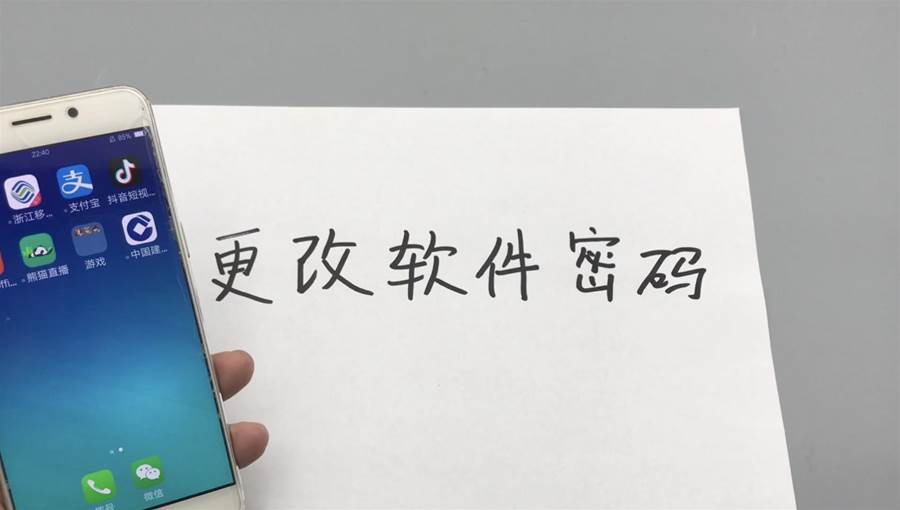 22:40
85%
浙江移...
支付宝
抖音短视...
熊猫直播
游戏
中国建...
更改软件密码
微信